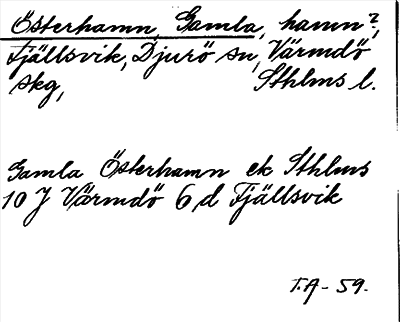 Österhamn, Gamla, hamn?,
Fjällsvik, Djurö sn, Värmdö
skg, Sthlms l.
Gamla Österhamn ek Sthlms
10 J Värmdö 6 d Fjällsvik
T.A - 59.